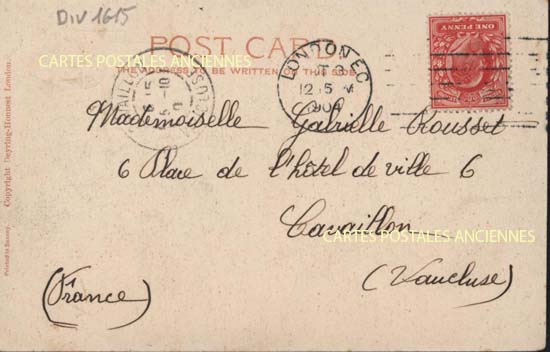 Div 1615
POST CARD
CARTES POSTALES ANCIENNES
THE ADDRESS TO BE WRITTEN ON THIS SIDE
LONDON E.C.
12.15
ONE PENNY
Mademoiselle Gabrielle Rousset
6 Place de l'hôtel de ville 6
Cavaillon
CARTES POSTALES ANCIENNES
(Vaucluse)
(France)
Copyright Beyring-Hionnest London.
Printed in Saxony.